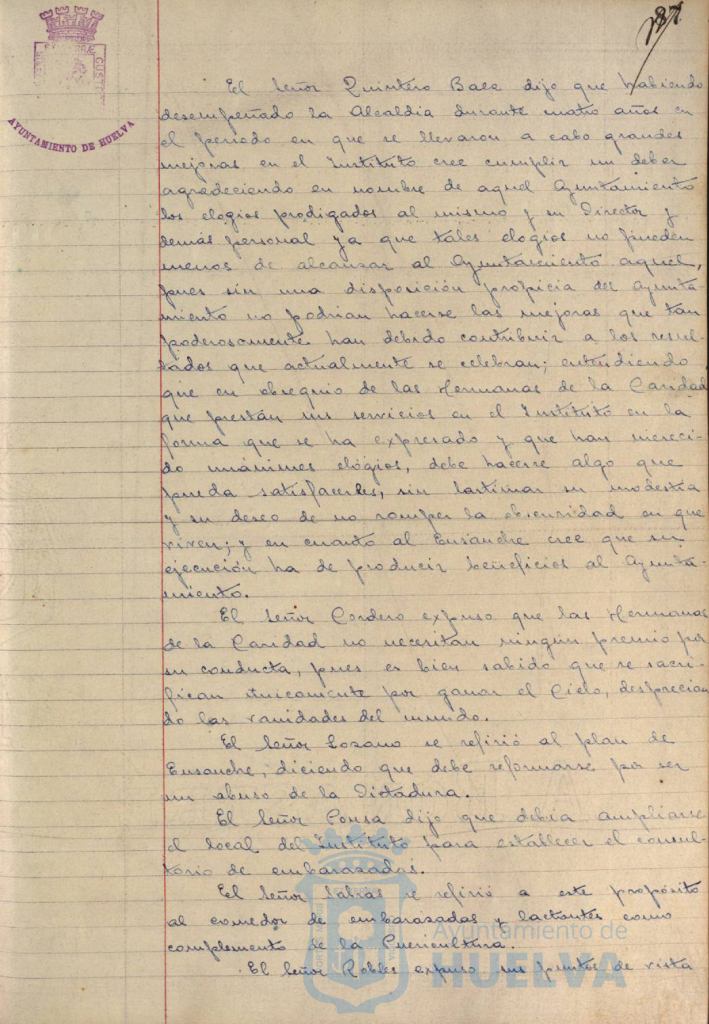 187
AYUNTAMIENTO DE HUELVA
El Señor Quintero Baez dijo que habiendo
desempeñado la Alcaldia durante cuatro años en
el periodo en que se llevaron a cabo grandes
mejoras en el Instituto cree cumplir un deber
agradeciendo en nombre de aquel Ayuntamiento
los elogios prodigados al mismo y su Director y
demás personal ya que tales elogios no pueden
menos de alcanzar al Ayuntamiento aquel,
pues sin una disposición propicia del Ayunta-
miento no podrian hacerse las mejoras que tan
poderosamente han debido contribuir a los resul-
tados que actualmente se celebran; entendiendo
que en obsequio de las Hermanas de la Caridad
que prestan sus servicios en el Instituto en la
forma que se ha expresado y que han mereci-
do unánimes elógios, debe hacerse algo que
pueda satisfacerles, sin lastimar su modestia
y su deseo de no romper la obscuridad en que
viven; y en cuanto al Ensanche cree que su
ejecución ha de producir beneficios al Ayunta-
miento.
El Señor Cordero expuso que las Hermanas
de la Caridad no necesitan ningún premio por
su conducta, pues es bien sabido que se sacri-
fican únicamente por ganar el Cielo, desprecian
do las vanidades del mundo.
El Señor Lozano se refirió al plan de
Ensanche, diciendo que debe reformarse por ser
un abuso de la Dictadura.
El Señor Ponsa dijo que debia ampliarse
el local del Instituto para establecer el consul-
torio de embarazadas.
El Señor Sabras se refirió a este propósito
al comedor de embarazadas y lactantes como
complemento de la Puericultura.
El Señor Robles expuso sus puntos de vista
Ayuntamiento de
HUELVA